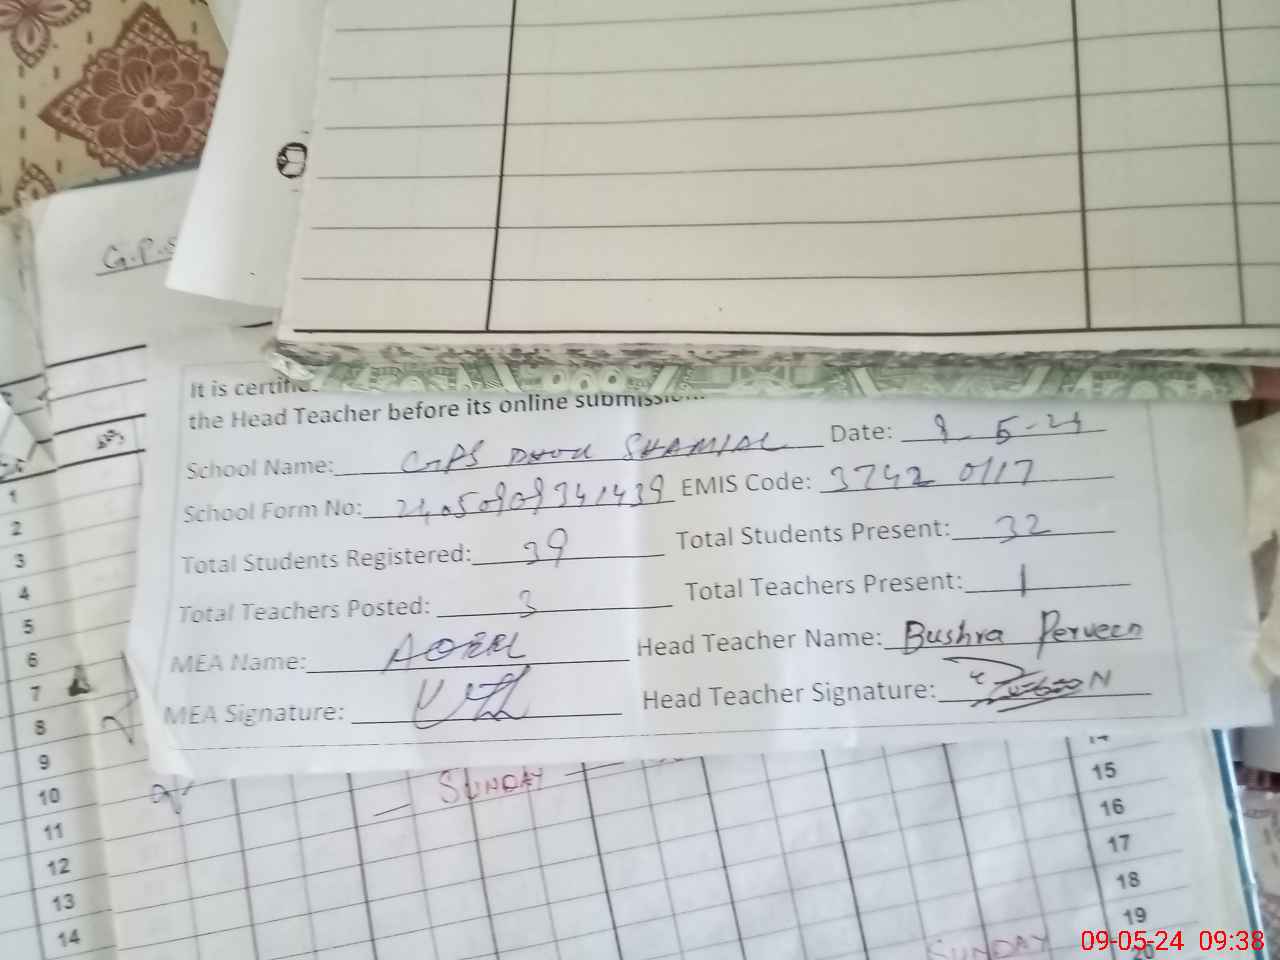 G.P.S
It is certific
the Head Teacher before its online submission
School Name: GPS SHAMIAL Date: 9-5-24
School Form No: EMIS Code: 37420117
Total Students Registered: 39 Total Students Present: 32
Total Teachers Posted: 3 Total Teachers Present: 1
MEA Name: Head Teacher Name: Bushra Perveen
MEA Signature: Head Teacher Signature:
1
2
3
4
5
6
7
8
9
10
11
12
13
14
SUNDAY
15
16
17
18
19
20
SUNDAY
09-05-24 09:38